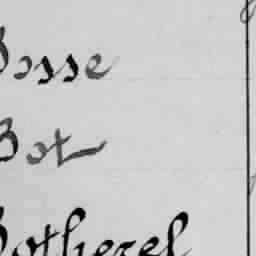 Bosse
Bot
Botherel